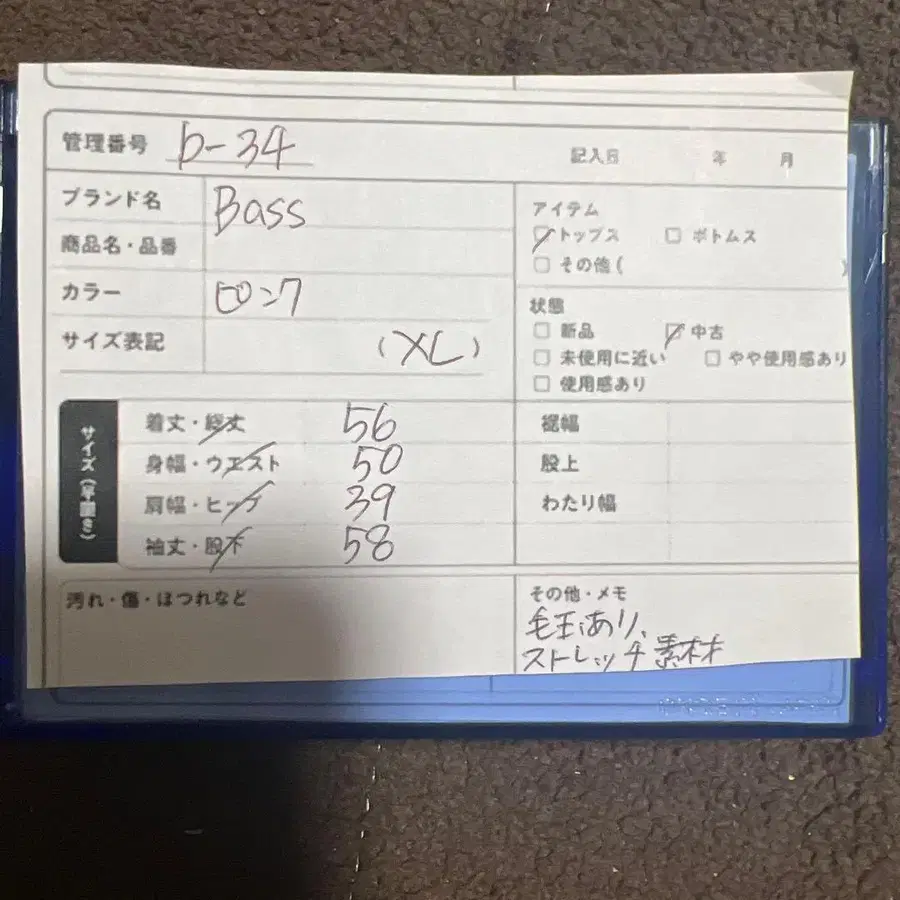 管理番号 b-34
記入日 年 月
ブランド名 Bass
商品名・品番
カラー ピンク
サイズ表記 (XL)
アイテム
トップス ボトムス
その他 ( )
状態
新品 中古
未使用に近い やや使用感あり
使用感あり
サイズ(平置き)
着丈・総丈 56
身幅・ウエスト 50
肩幅・ヒップ 39
袖丈・股下 58
裾幅
股上
わたり幅
汚れ・傷・ほつれなど
その他・メモ
毛玉あり、
ストレッチ素材